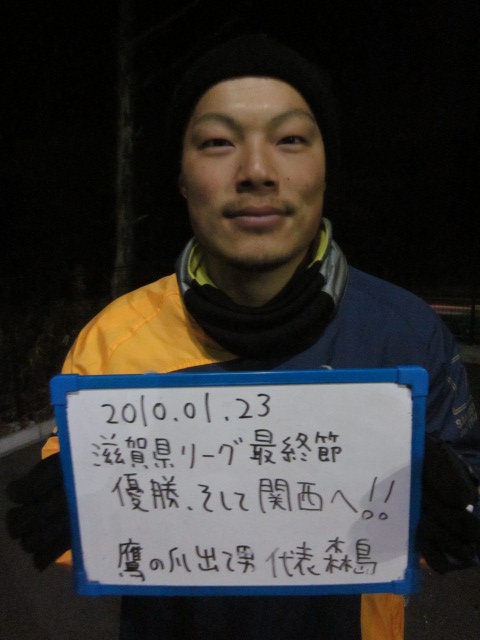 2010.01.23
滋賀県リーグ最終節
優勝、そして関西へ!!
鷹の爪出て男 代表 森島